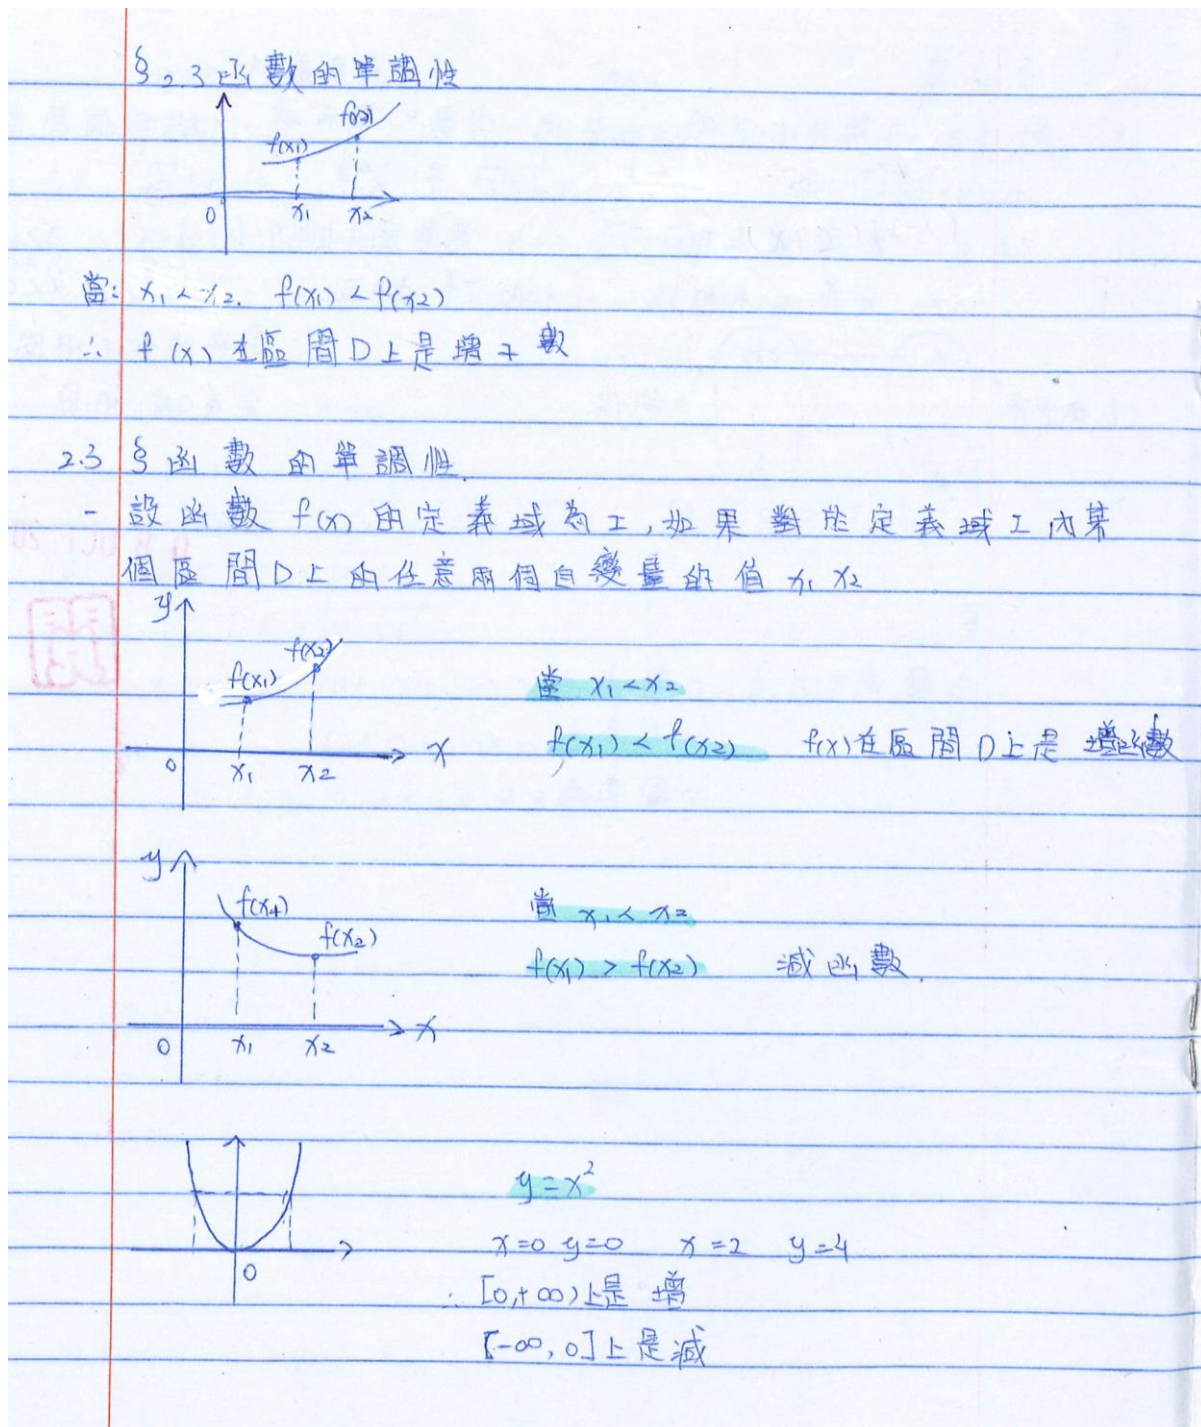 §2.3函數的單調性
f(x₁) f(x₂)
0 x₁ x₂
當: x₁<x₂. f(x₁)<f(x₂)
∴ f(x)在區間D上是增子數
2.3 §函數的單調性.
- 設函數 f(x) 的定義域為I,如果對於定義域I內某
個區間D上的任意兩個自變量的值 x₁ x₂
y
f(x₁) f(x₂)
當 x₁<x₂
f(x₁)<f(x₂) f(x)在區間D上是增函數
0 x₁ x₂ x
y
f(x₁) f(x₂)
當 x₁<x₂
f(x₁)>f(x₂) 減函數.
0 x₁ x₂ x
y=x²
x=0 y=0 x=2 y=4
0
∴ [0,+∞)上是增
[-∞,0]上是減